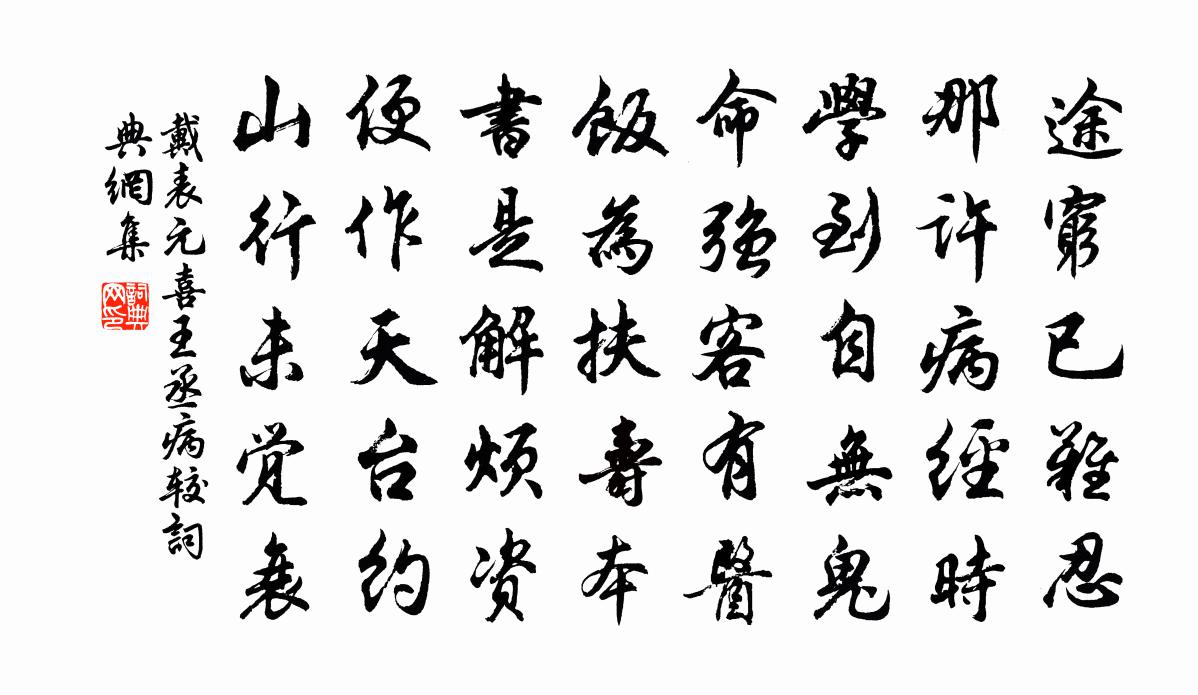 途窮已難忍
那許病經時
學到自無鬼
命強客有醫
飯為扶壽本
書是解煩資
便作天台約
山行未覺衰
戴表元喜王丞病較詞
典網集
詞典
网印